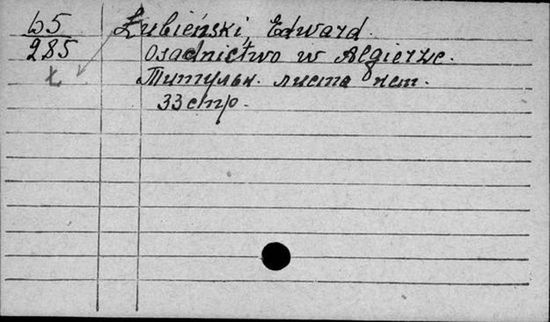 Б5 Łubieński, Edward.
285 Osadnictwo w Algierze.
Ł Титульн. листа нет.
33 стр.